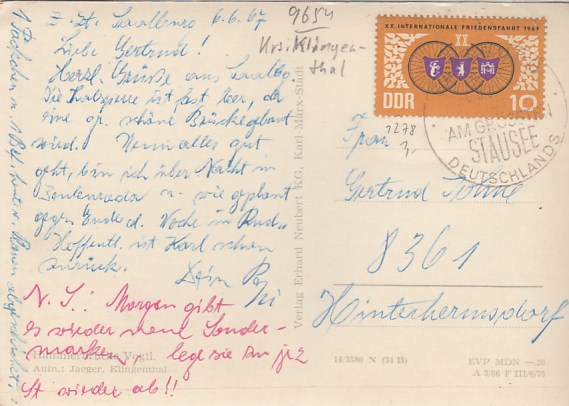 z. Zt. Saalburg 6.6.67
Liebe Gertrud!
Herzl. Grüße aus Saalbg.
Die Talsperre ist fast leer, da
eine gr. schöne Brücke gebaut
wird. Wenn alles gut
geht, bin ich über Nacht in
Zeulenroda u. wie geplant
gegen Ende d. Woche in Rud.
Hoffentl. ist Karl schon
zurück.
Dein
N. S.: Morgen gibt
es wieder neue Sonder-
marken, lege sie dir jz
wieder ab!!
1 Päckchen u. 1 Brf.
9654
Klingen-
thal
1278
XX. INTERNATIONALE FRIEDENSFAHRT 1967
XX
DDR 10
AM GROSSEN
STAUSEE
DEUTSCHLANDS
Frau
Gertrud
8361
Hinterhermsdorf
Verlag Erhard Neubert KG, Karl-Marx-Stadt
Hammerbrücke Vogtl.
Aufn.: Jaeger, Klingenthal
14/3380 N (34 21)
EVP MDN -.20
A 2/66 F III/6/75